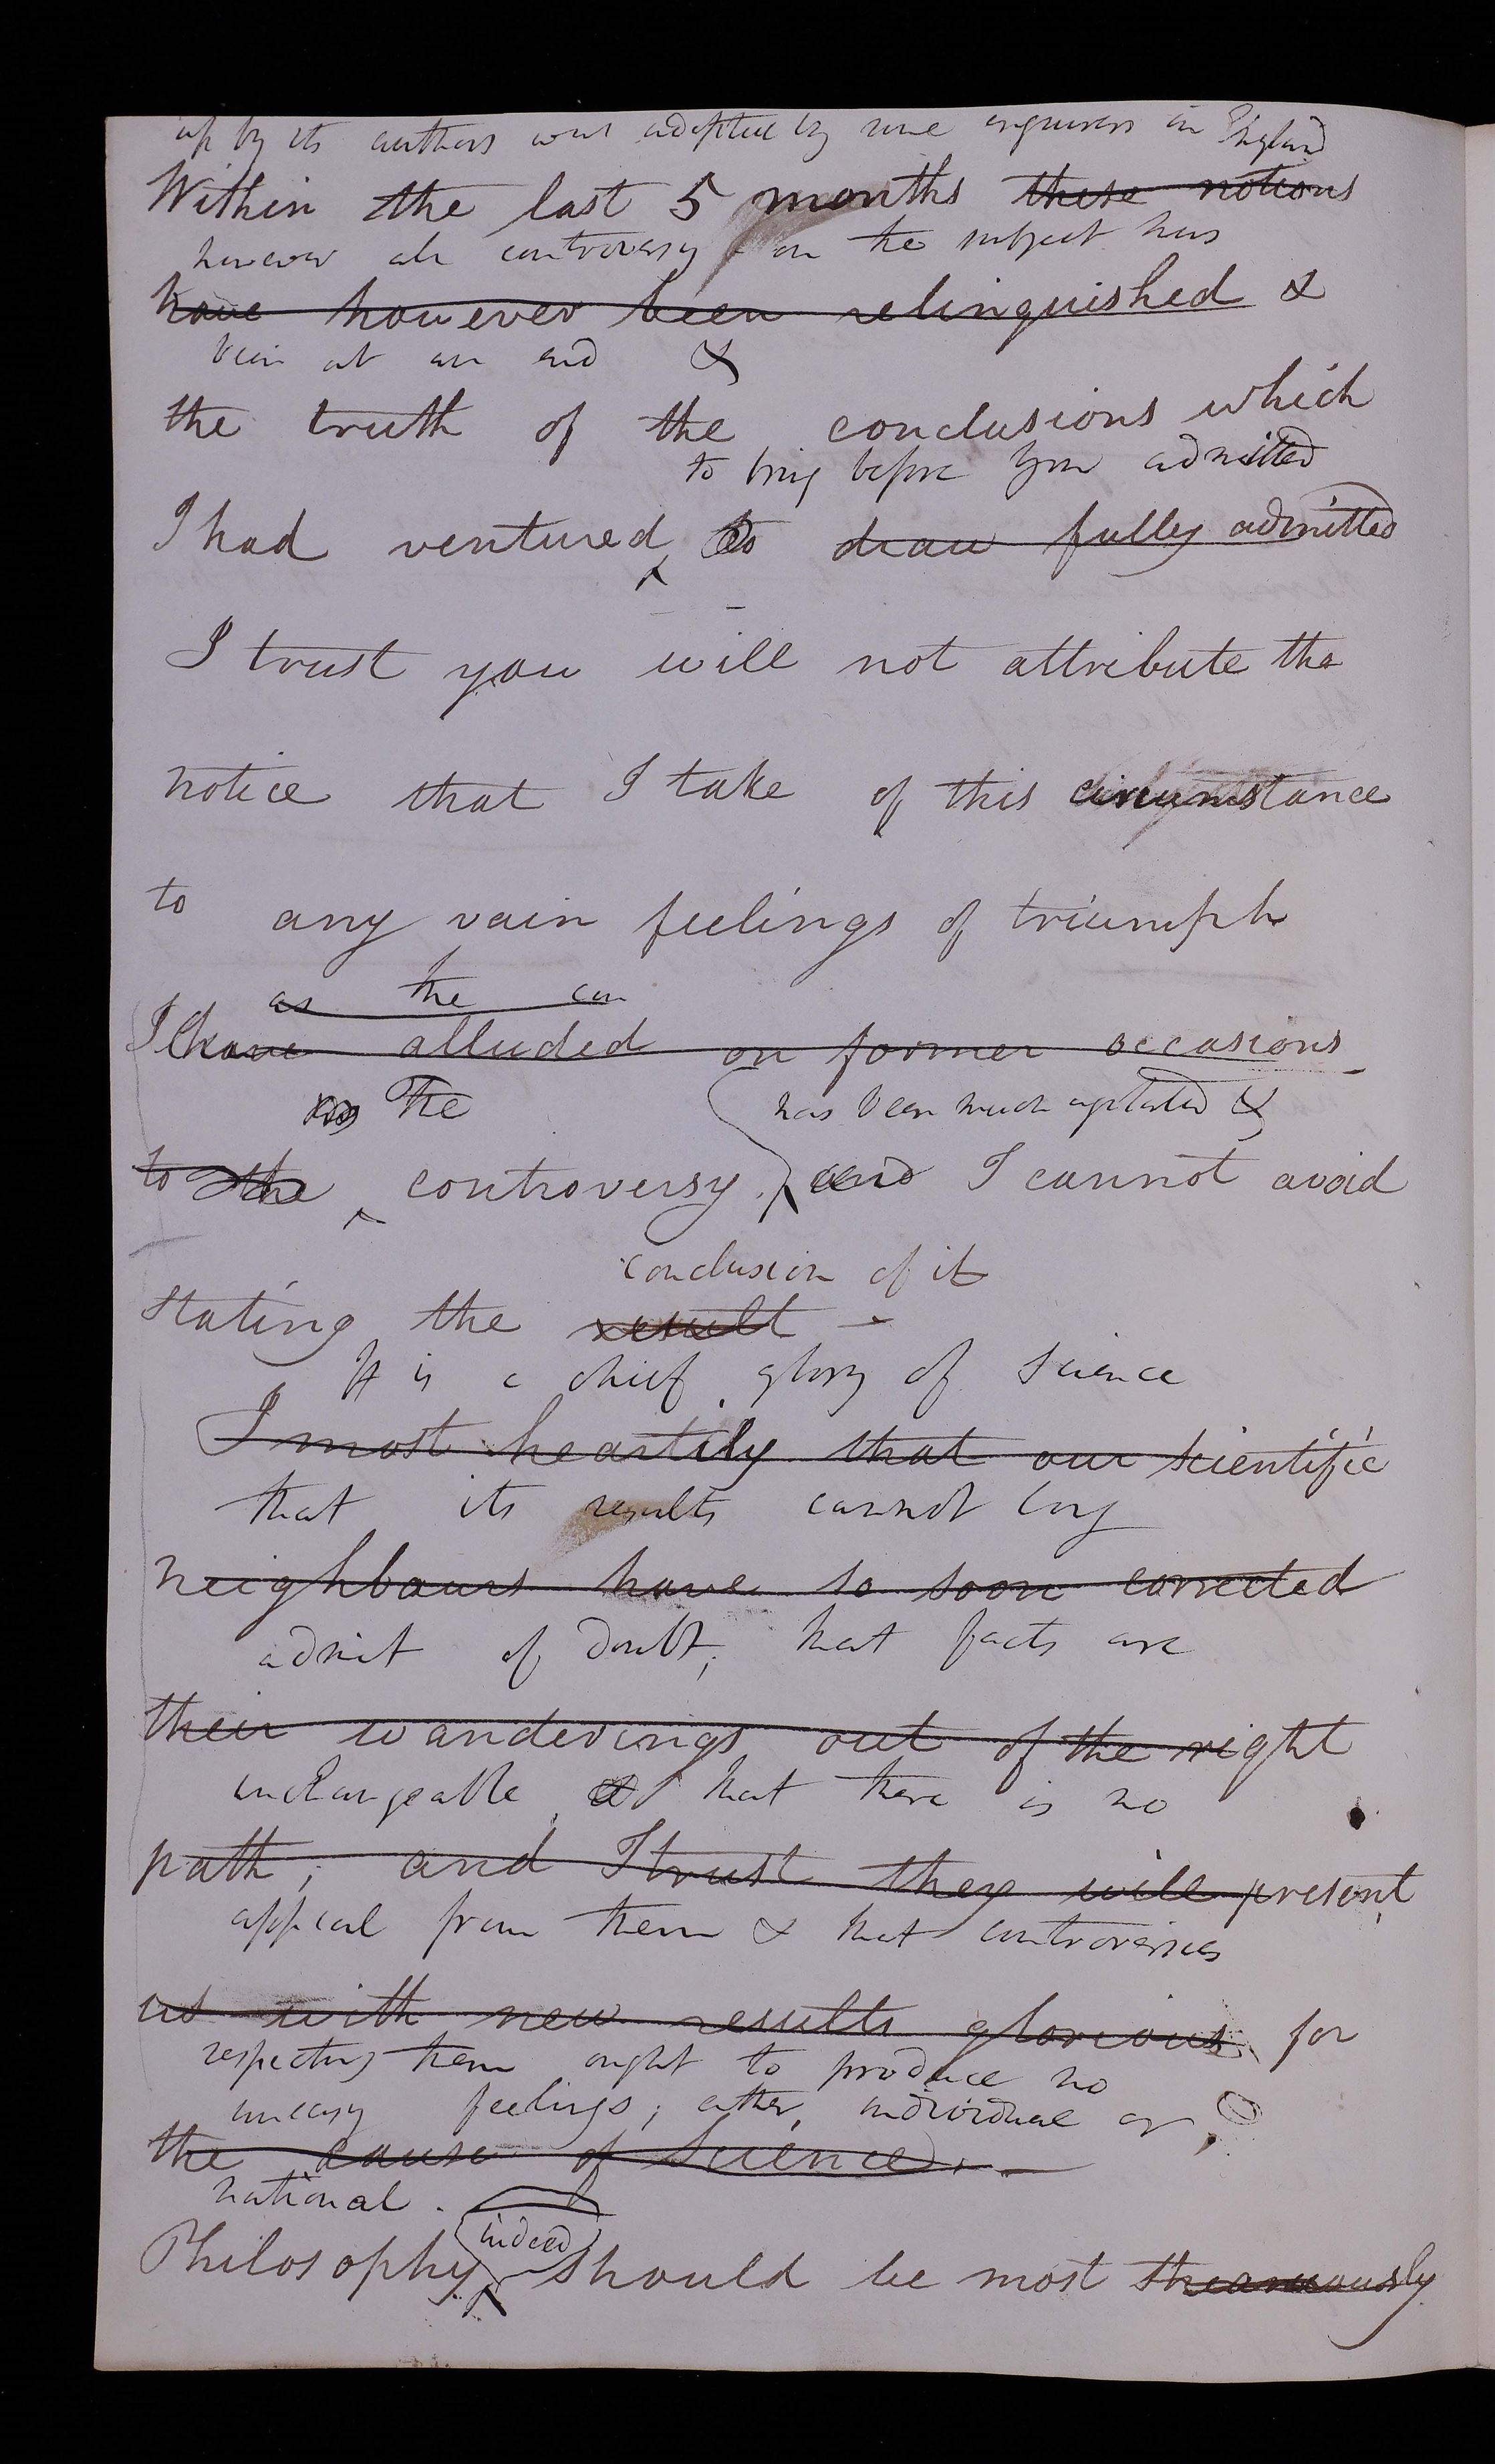 up by its authors was adopted by some enquirers in England
Within the last 5 months these notions
however all controversy on the subject has
have however been relinquished &
been at an end &
the truth of the conclusions which
to bring before you admitted
I had ventured to draw fully admitted
I trust you will not attribute the
notice that I take of this circumstance
to any vain feelings of triumph
as the con
I have alluded on former occasions
as The
has been much agitated &
to the controversy. and I cannot avoid
conclusion of it
stating the result –
It is a chief glory of Science
I most heartily that our scientific
that its results cannot long
neighbours have so soon corrected
admit of doubt; that facts are
their wanderings out of the right
unchangeable, & that there is no
path; and I trust they will present
appeal from them & that controversies
us with new results glorious for
respecting them ought to produce no
uneasy feelings; either individual or
the cause of Science. –
national.
indeed
Philosophy should be most strenuously